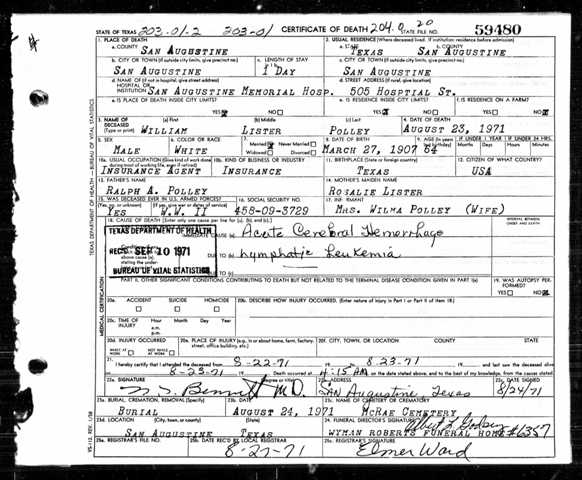 203.01-2 203-01 204.0 20
STATE OF TEXAS CERTIFICATE OF DEATH STATE FILE NO. 59480
1. PLACE OF DEATH 2. USUAL RESIDENCE (Where deceased lived. If institution: residence before admission)
a. COUNTY SAN AUGUSTINE a. STATE TEXAS b. COUNTY SAN AUGUSTINE
b. CITY OR TOWN (If outside city limits, give precinct no.) c. LENGTH OF STAY c. CITY OR TOWN (If outside city limits, give precinct no.)
SAN AUGUSTINE 1 DAY SAN AUGUSTINE
d. NAME OF (If not in hospital, give street address) d. STREET ADDRESS (If rural, give location)
HOSPITAL OR INSTITUTION SAN AUGUSTINE MEMORIAL HOSP. 505 HOSPTIAL ST.
e. IS PLACE OF DEATH INSIDE CITY LIMITS? e. IS RESIDENCE INSIDE CITY LIMITS? f. IS RESIDENCE ON A FARM?
YES NO YES NO YES NO
3. NAME OF DECEASED (Type or print) (a) First (b) Middle (c) Last 4. DATE OF DEATH
WILLIAM LISTER POLLEY AUGUST 23, 1971
5. SEX 6. COLOR OR RACE 7. Married Never Married Widowed Divorced 8. DATE OF BIRTH 9. AGE IF UNDER 1 YEAR IF UNDER 24 HRS.
MALE WHITE MARCH 27, 1907 64 Months Days Hours Min.
10a. USUAL OCCUPATION (Give kind of work done 10b. KIND OF BUSINESS OR INDUSTRY 11. BIRTHPLACE (State or foreign country) 12. CITIZEN OF WHAT COUNTRY?
INSURANCE AGENT INSURANCE TEXAS USA
13. FATHER'S NAME 14. MOTHER'S MAIDEN NAME
RALPH A. POLLEY ROSALIE LISTER
15. WAS DECEASED EVER IN U.S. ARMED FORCES? 16. SOCIAL SECURITY NO. 17. INFORMANT
YES W.W. II 455-09-3729 MRS. WILMA POLLEY (WIFE)
18. CAUSE OF DEATH (Enter only one cause per line for (a), (b), and (c).) INTERVAL BETWEEN
TEXAS DEPARTMENT OF HEALTH CAUSE (a) Acute Cerebral Hemorrhage
REC'D SEP 10 1971 DUE TO (b) Lymphatic Leukemia
BUREAU OF VITAL STATISTICS DUE TO (c)
PART II. OTHER SIGNIFICANT CONDITIONS CONTRIBUTING TO DEATH BUT NOT RELATED TO THE TERMINAL DISEASE CONDITION GIVEN IN PART I(a) 19. WAS AUTOPSY PERFORMED?
YES NO
20a. ACCIDENT SUICIDE HOMICIDE 20b. DESCRIBE HOW INJURY OCCURRED. (Enter nature of injury in Part I or Part II of item 18.)
20c. TIME OF INJURY Hour Month Day Year
a.m.
p.m.
20d. INJURY OCCURRED 20e. PLACE OF INJURY (e.g., in or about home, farm, factory, street, office building, etc.) 20f. CITY, TOWN, OR LOCATION COUNTY STATE
WHILE AT WORK NOT WHILE AT WORK
21. I hereby certify that I attended the deceased from 8-22-71 8-23-71 and last saw the deceased alive
8-23-71 Death occurred at 4:15 AM on the date stated above, and to the best of my knowledge, from the causes stated
22a. SIGNATURE (Degree or title) 22b. ADDRESS 22c. DATE SIGNED
Bennett M.D. San Augustine Texas 8/24/71
23a. BURIAL, CREMATION, REMOVAL (Specify) 23b. DATE 23c. NAME OF CEMETERY OR CREMATORY
BURIAL AUGUST 24, 1971 MCRAE CEMETERY
23d. LOCATION (City, town, or county) (State) 24. FUNERAL DIRECTOR'S SIGNATURE
SAN AUGUSTINE TEXAS WYMAN ROBERTS FUNERAL HOME #6357
25a. REGISTRAR'S FILE NO. 25b. DATE REC'D BY LOCAL REGISTRAR 25c. REGISTRAR'S SIGNATURE
8-27-71 Elmer Ward
TEXAS DEPARTMENT OF HEALTH — BUREAU OF VITAL STATISTICS
MEDICAL CERTIFICATION